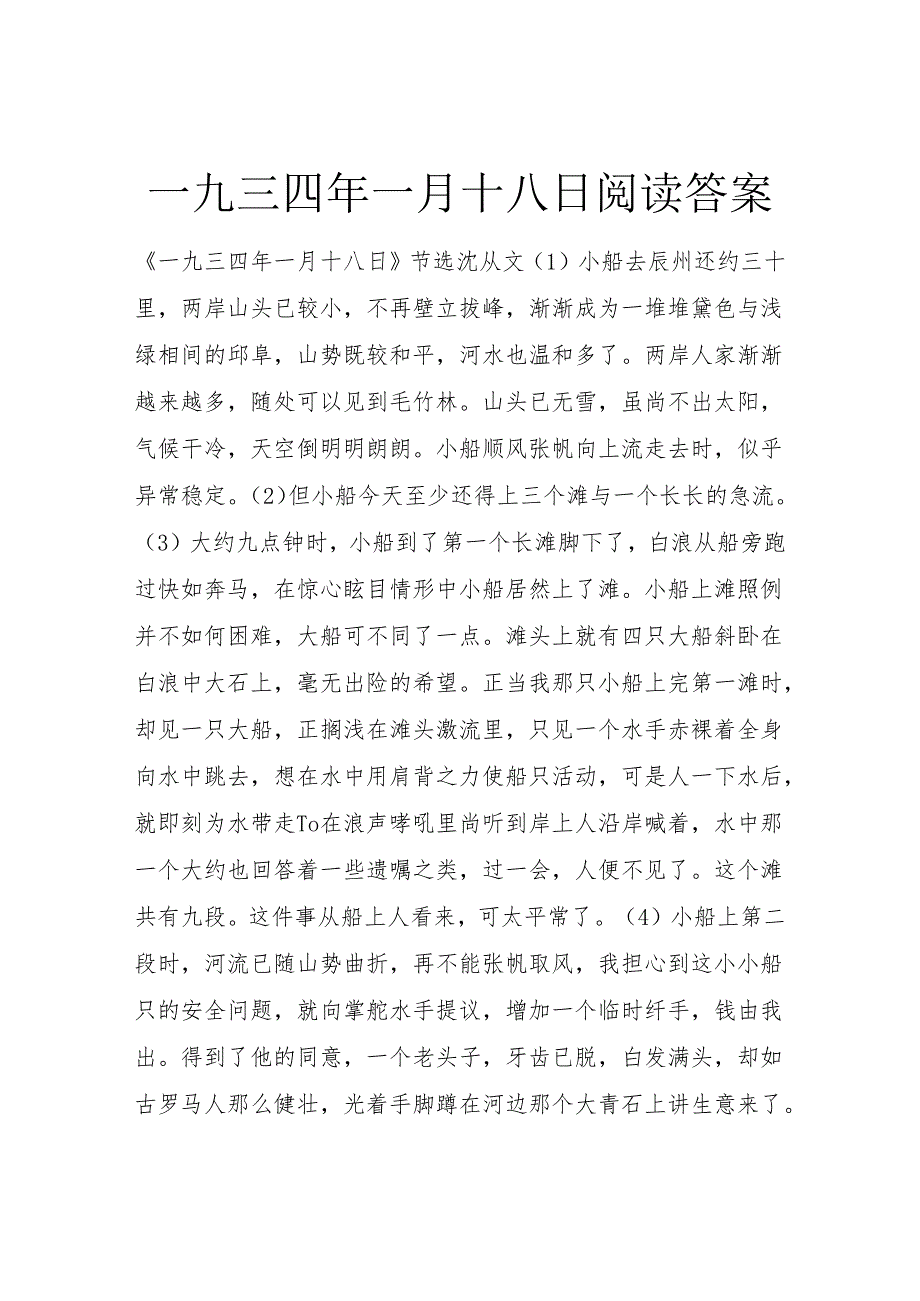 一九三四年一月十八日阅读答案
《一九三四年一月十八日》节选沈从文（1）小船去辰州还约三十
里，两岸山头已较小，不再壁立拔峰，渐渐成为一堆堆黛色与浅
绿相间的邱阜，山势既较和平，河水也温和多了。两岸人家渐渐
越来越多，随处可以见到毛竹林。山头已无雪，虽尚不出太阳，
气候干冷，天空倒明明朗朗。小船顺风张帆向上流走去时，似乎
异常稳定。（2）但小船今天至少还得上三个滩与一个长长的急流。
（3）大约九点钟时，小船到了第一个长滩脚下了，白浪从船旁跑
过快如奔马，在惊心眩目情形中小船居然上了滩。小船上滩照例
并不如何困难，大船可不同了一点。滩头上就有四只大船斜卧在
白浪中大石上，毫无出险的希望。正当我那只小船上完第一滩时，
却见一只大船，正搁浅在滩头激流里，只见一个水手赤裸着全身
向水中跳去，想在水中用肩背之力使船只活动，可是人一下水后，
就即刻为水带走To在浪声哮吼里尚听到岸上人沿岸喊着，水中那
一个大约也回答着一些遗嘱之类，过一会，人便不见了。这个滩
共有九段。这件事从船上人看来，可太平常了。（4）小船上第二
段时，河流已随山势曲折，再不能张帆取风，我担心到这小小船
只的安全问题，就向掌舵水手提议，增加一个临时纤手，钱由我
出。得到了他的同意，一个老头子，牙齿已脱，白发满头，却如
古罗马人那么健壮，光着手脚蹲在河边那个大青石上讲生意来了。